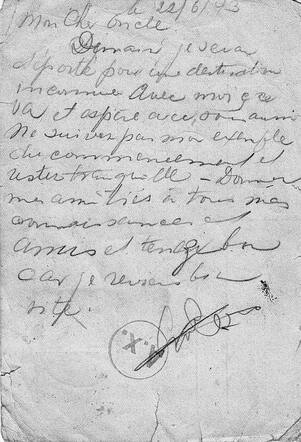 le 22/6/43
Mon Cher Oncle
Demain je serai
déporté pour une destination
inconnue Avec moi ça
va et aspère avec vous aussi
Ne suivez pas mon exemple
du commencement et
restez tranquille – Donner
mes amitiés à tous mes
connaissances et
amis et tenez bon
Car je reviens bien
vite.